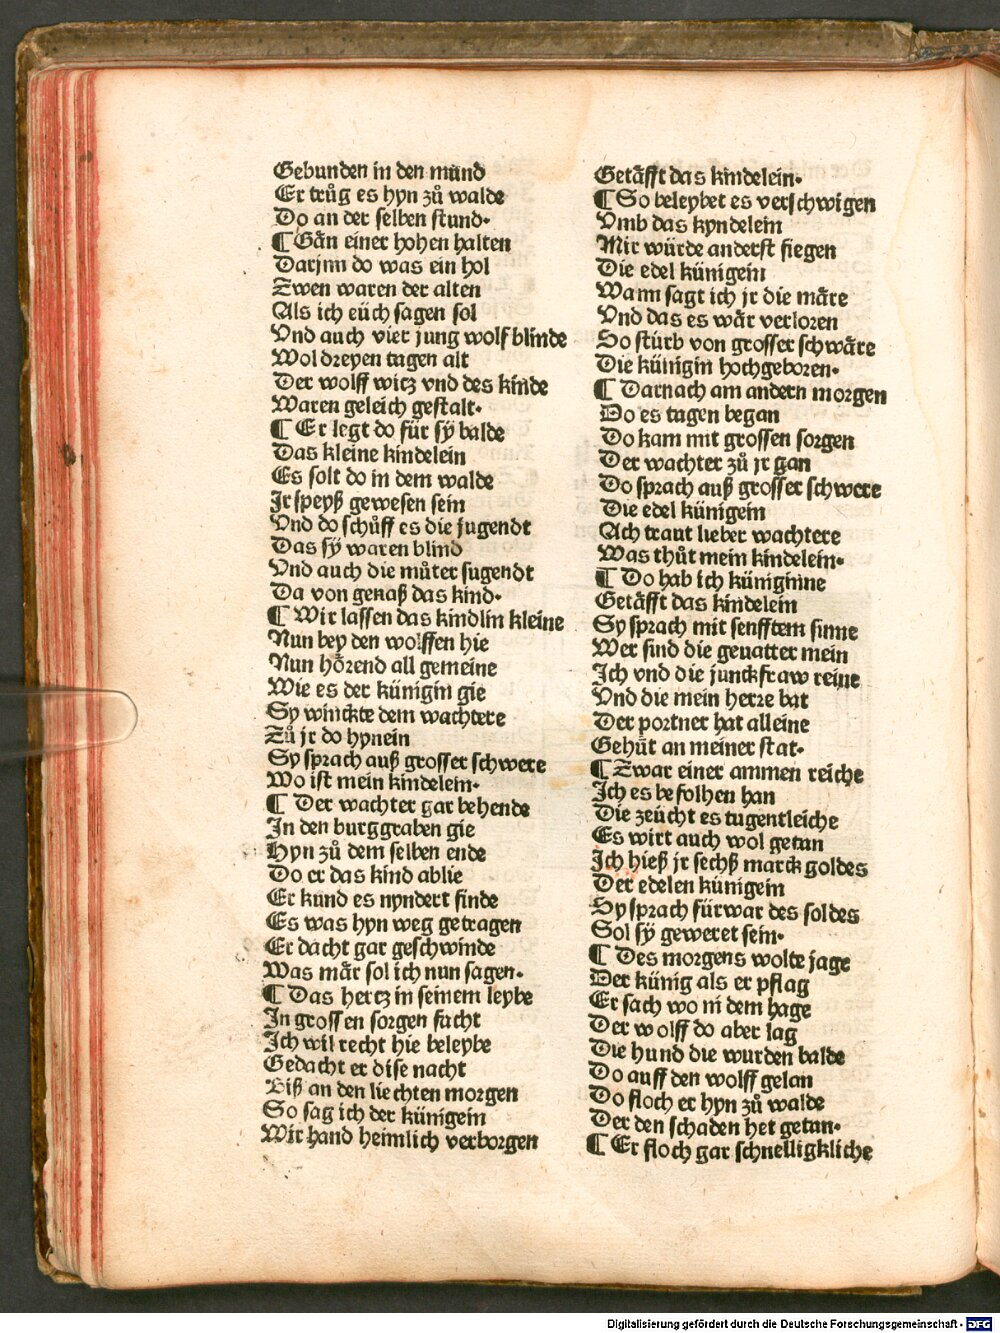 Gebunden in den mund
Er trůg es hyn zů walde
Do an der selben stund.
¶ Gān einer hohen halten
Darinn do was ein hol
Zwen waren der alten
Als ich eüch sagen sol
Vnd auch vier jung wolf blinde
Wol dreyen tagen alt
Der wolff witz vnd des kinde
Waren geleich gestalt.
¶ Er legt do für sÿ balde
Das kleine kindelein
Es solt do in dem walde
Jr speyß gewesen sein
Vnd do schůff es die jugendt
Das sÿ waren blind
Vnd auch die můter sugendt
Da von genaß das kind.
¶ Wir lassen das kindlin kleine
Nun bey den wolffen hie
Nun hörend all gemeine
Wie es der künigin gie
Sy winckte dem wachtere
Zů jr do hynein
Sy sprach auß grosser schwere
Wo ist mein kindelein.
¶ Der wachter gar behende
In den burggraben gie
Hyn zů dem selben ende
Do er das kind ablie
Er kund es nyndert finde
Es was hyn weg getragen
Er dacht gar geschwinde
Was mär sol ich nun sagen.
¶ Das hertz in seinem leybe
In grossen sorgen facht
Ich wil recht hie beleybe
Gedacht er dise nacht
Biß an den liechten morgen
So sag ich der künigein
Wir hand heimlich verborgen
Getäfft das kindelein.
¶ So beleybet es verschwigen
Vmb das kyndelein
Mir würde anderst siegen
Die edel künigein
Wann sagt ich jr die märe
Vnd das es wär verloren
So stürb von grosser schwäre
Die künigin hochgeboren.
¶ Darnach am andern morgen
Do es tagen began
Do kam mit grossen sorgen
Der wachter zů jr gan
Do sprach auß grosser schwere
Die edel künigein
Ach traut lieber wachtere
Was thůt mein kindelein.
¶ Do hab ich küniginne
Getäfft das kindelein
Sy sprach mit senfftem sinne
Wer sind die geuatter mein
Ich vnd die junckfraw reine
Vnd die mein herre bat
Der portner hat alleine
Gehüt an meiner stat.
¶ Zwar einer ammen reiche
Ich es befolhen han
Die zeücht es tugentleiche
Es wirt auch wol getan
Ich hieß jr sechß marck goldes
Der edelen künigein
Sy sprach fürwar des soldes
Sol sÿ geweret sein.
¶ Des morgens wolte jage
Der künig als er pflag
Er sach wo in dem hage
Der wolff do aber lag
Die hund die wurden balde
Do auff den wolff gelan
Do floch er hyn zů walde
Der den schaden het getan.
¶ Er floch gar schnelligkliche
Digitalisierung gefördert durch die Deutsche Forschungsgemeinschaft - DFG